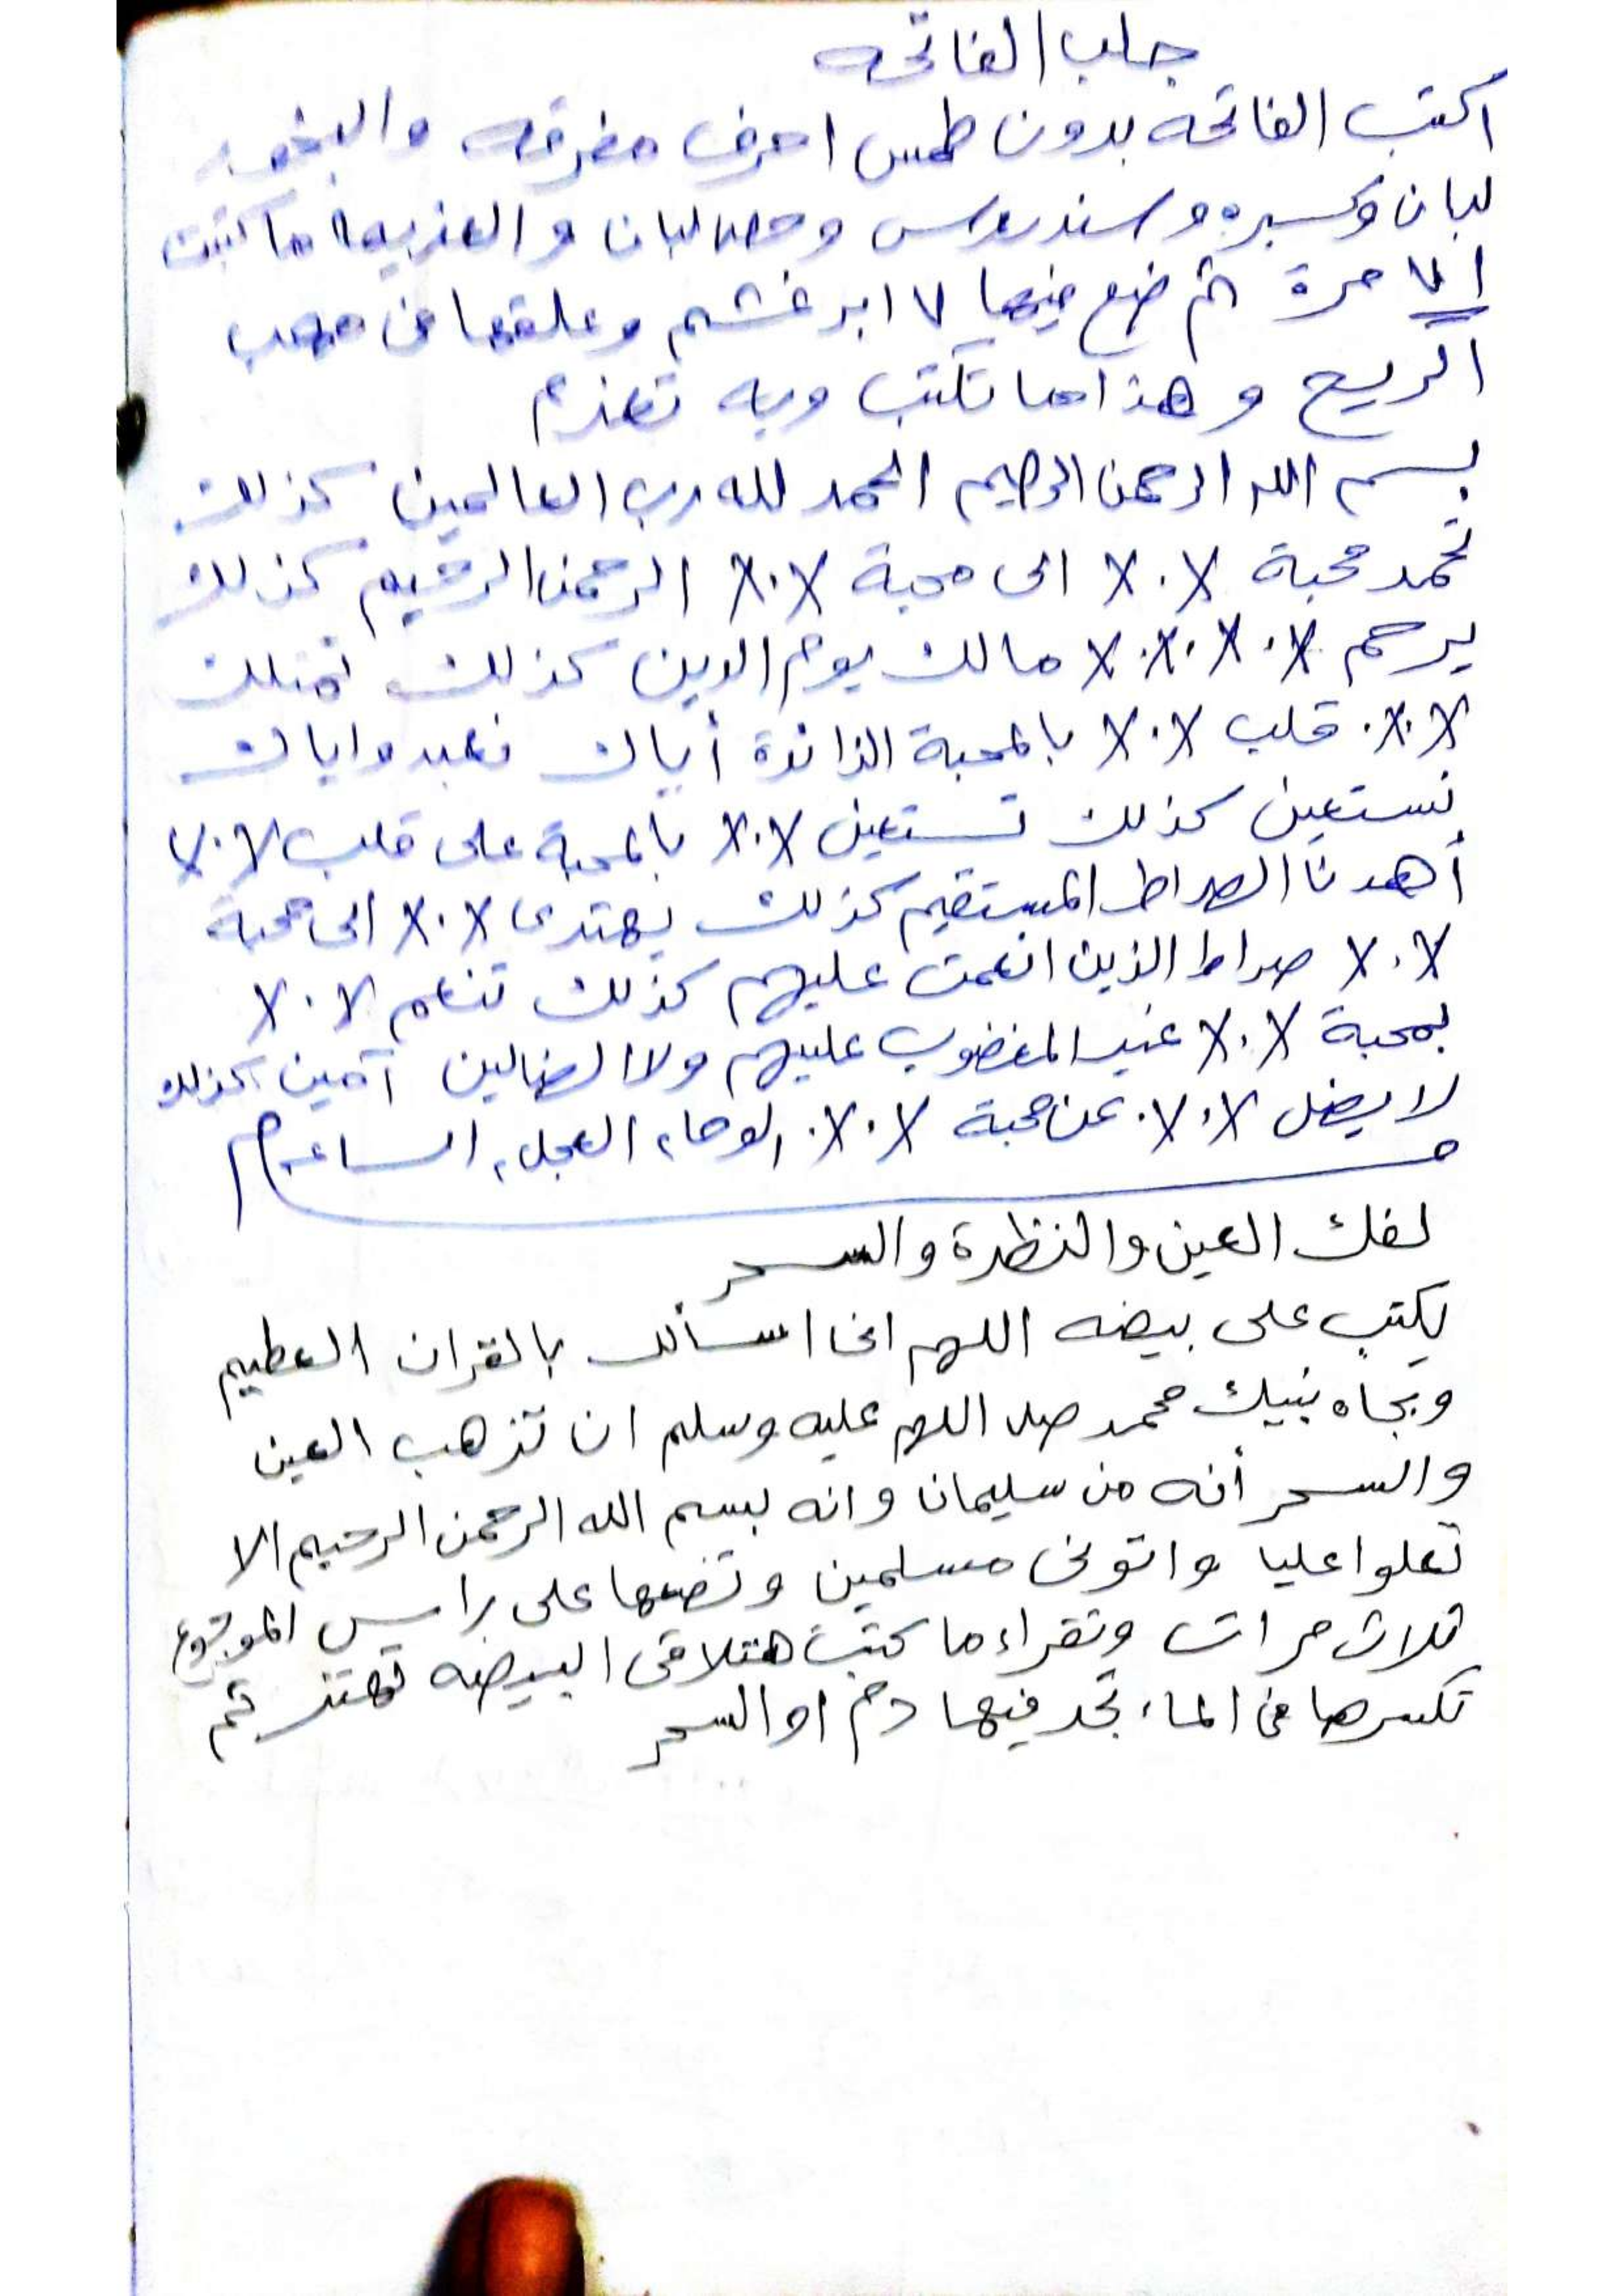 جلب الفاتحه
اكتب الفاتحه بدون طمس احرف مفرقه والبخور
لبان وكسبره وسندروس وحصالبان والعزيمه ما كتبت
٧١ مرة ثم ضع فيها ٧ ابر غشم وعلقها فى مهب
الريح و هذا ما تكتب وبه تعزم
بسم الله الرحمن الرحيم الحمد لله رب العالمين كذلك
تحمد محبة X٠X الى محبة X٠X الرحمن الرحيم كذلك
يرحم X٠X٠X٠X مالك يوم الدين كذلك تمتلك
X٠X٠ قلب X٠X بالمحبة الزائدة أياك نعبد واياك
نستعين كذلك تستعين X٠X بالمحبة على قلب X٠X
أهدنا الصراط المستقيم كذلك يهتدى X٠X الى محبة
X٠X صراط الذين انعمت عليهم كذلك تنعم X٠X
بمحبة X٠X غير المغضوب عليهم ولا الضالين آمين كذلك
لا يضل X٠X٠ عن محبة X٠X٠ الوحاء العجل، الساعه
لفك العين والنظرة والسحر
يكتب على بيضه اللهم انى اسألك بالقران العظيم
وبجاه نبيك محمد صلا اللهم عليه وسلم ان تذهب العين
والسحر أنه من سليمان وانه بسم الله الرحمن الرحيم الا
تعلوا عليا واتونى مسلمين وتضعها على راس الموجوع
ثلاث مرات وتقراء ما كتبت هتلاقى البيضه تهتز ثم
تكسرها فى الماء تجد فيها دم او السحر